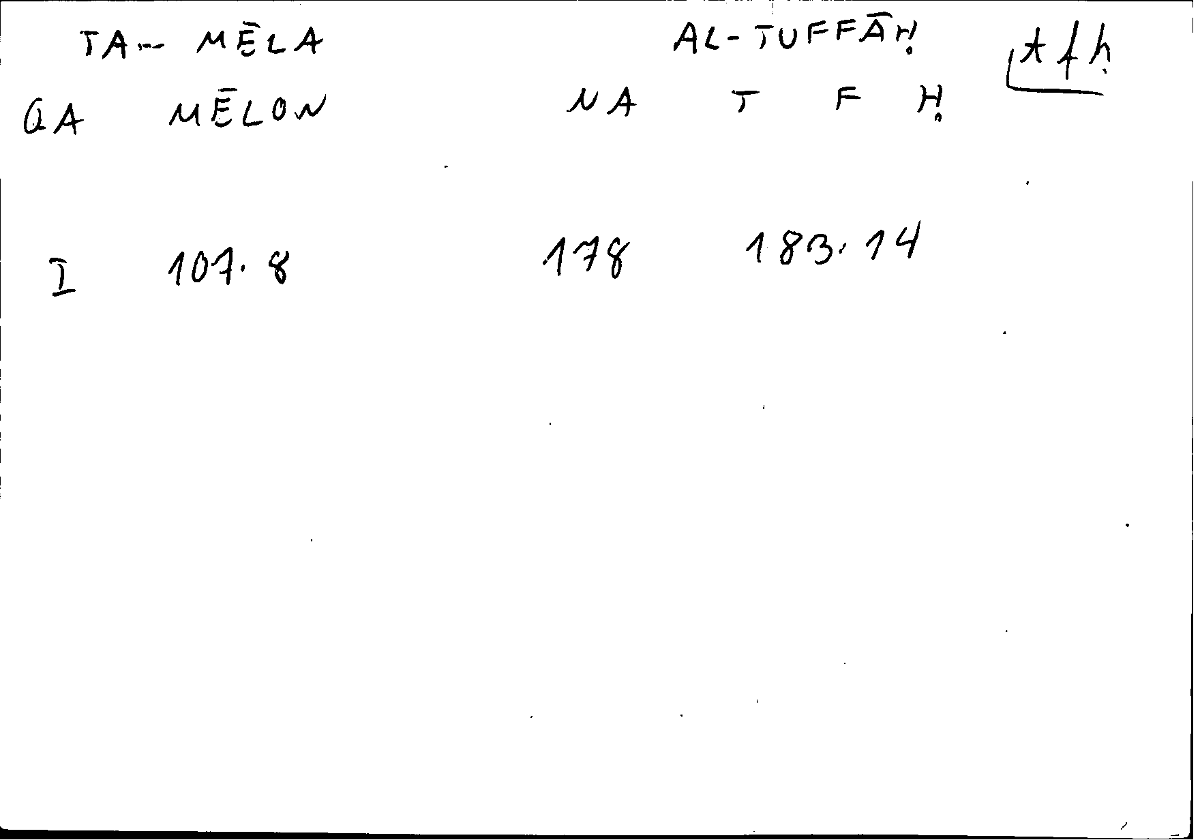 TA- MĒLA AL-TUFFĀḤ tfḥ
QA MĒLON NA T F Ḥ
I 107.8 178 183.14